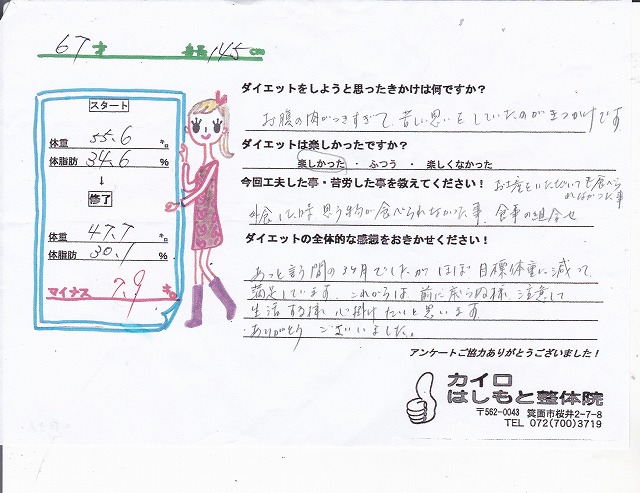 67才 身長 145cm
スタート
体重 55.6 キロ
体脂肪 34.6 %
終了
体重 47.7 キロ
体脂肪 30.1 %
マイナス 7.9 キロ
ダイエットをしようと思ったきかけは何ですか？
お腹の肉がつきすぎて、苦しい思いをしていたのがきっかけです
ダイエットは楽しかったですか？
楽しかった ・ ふつう ・ 楽しくなかった
今回工夫した事・苦労した事を教えてください！ お土産をいただいても食べら
れなかった事
外食した時 思う物が食べられなかった事、食事の組合せ
ダイエットの全体的な感想をおきかせください！
あっと言う間の3ヶ月でしたが ほぼ目標体重に減って
満足しています。これからは、前に戻らぬ様、注意して
生活する様 心掛けたいと思います。
ありがとう ございました。
アンケートご協力ありがとうございました！
カイロ
はしもと整体院
〒562-0043 箕面市桜井2-7-8
TEL 072(700)3719